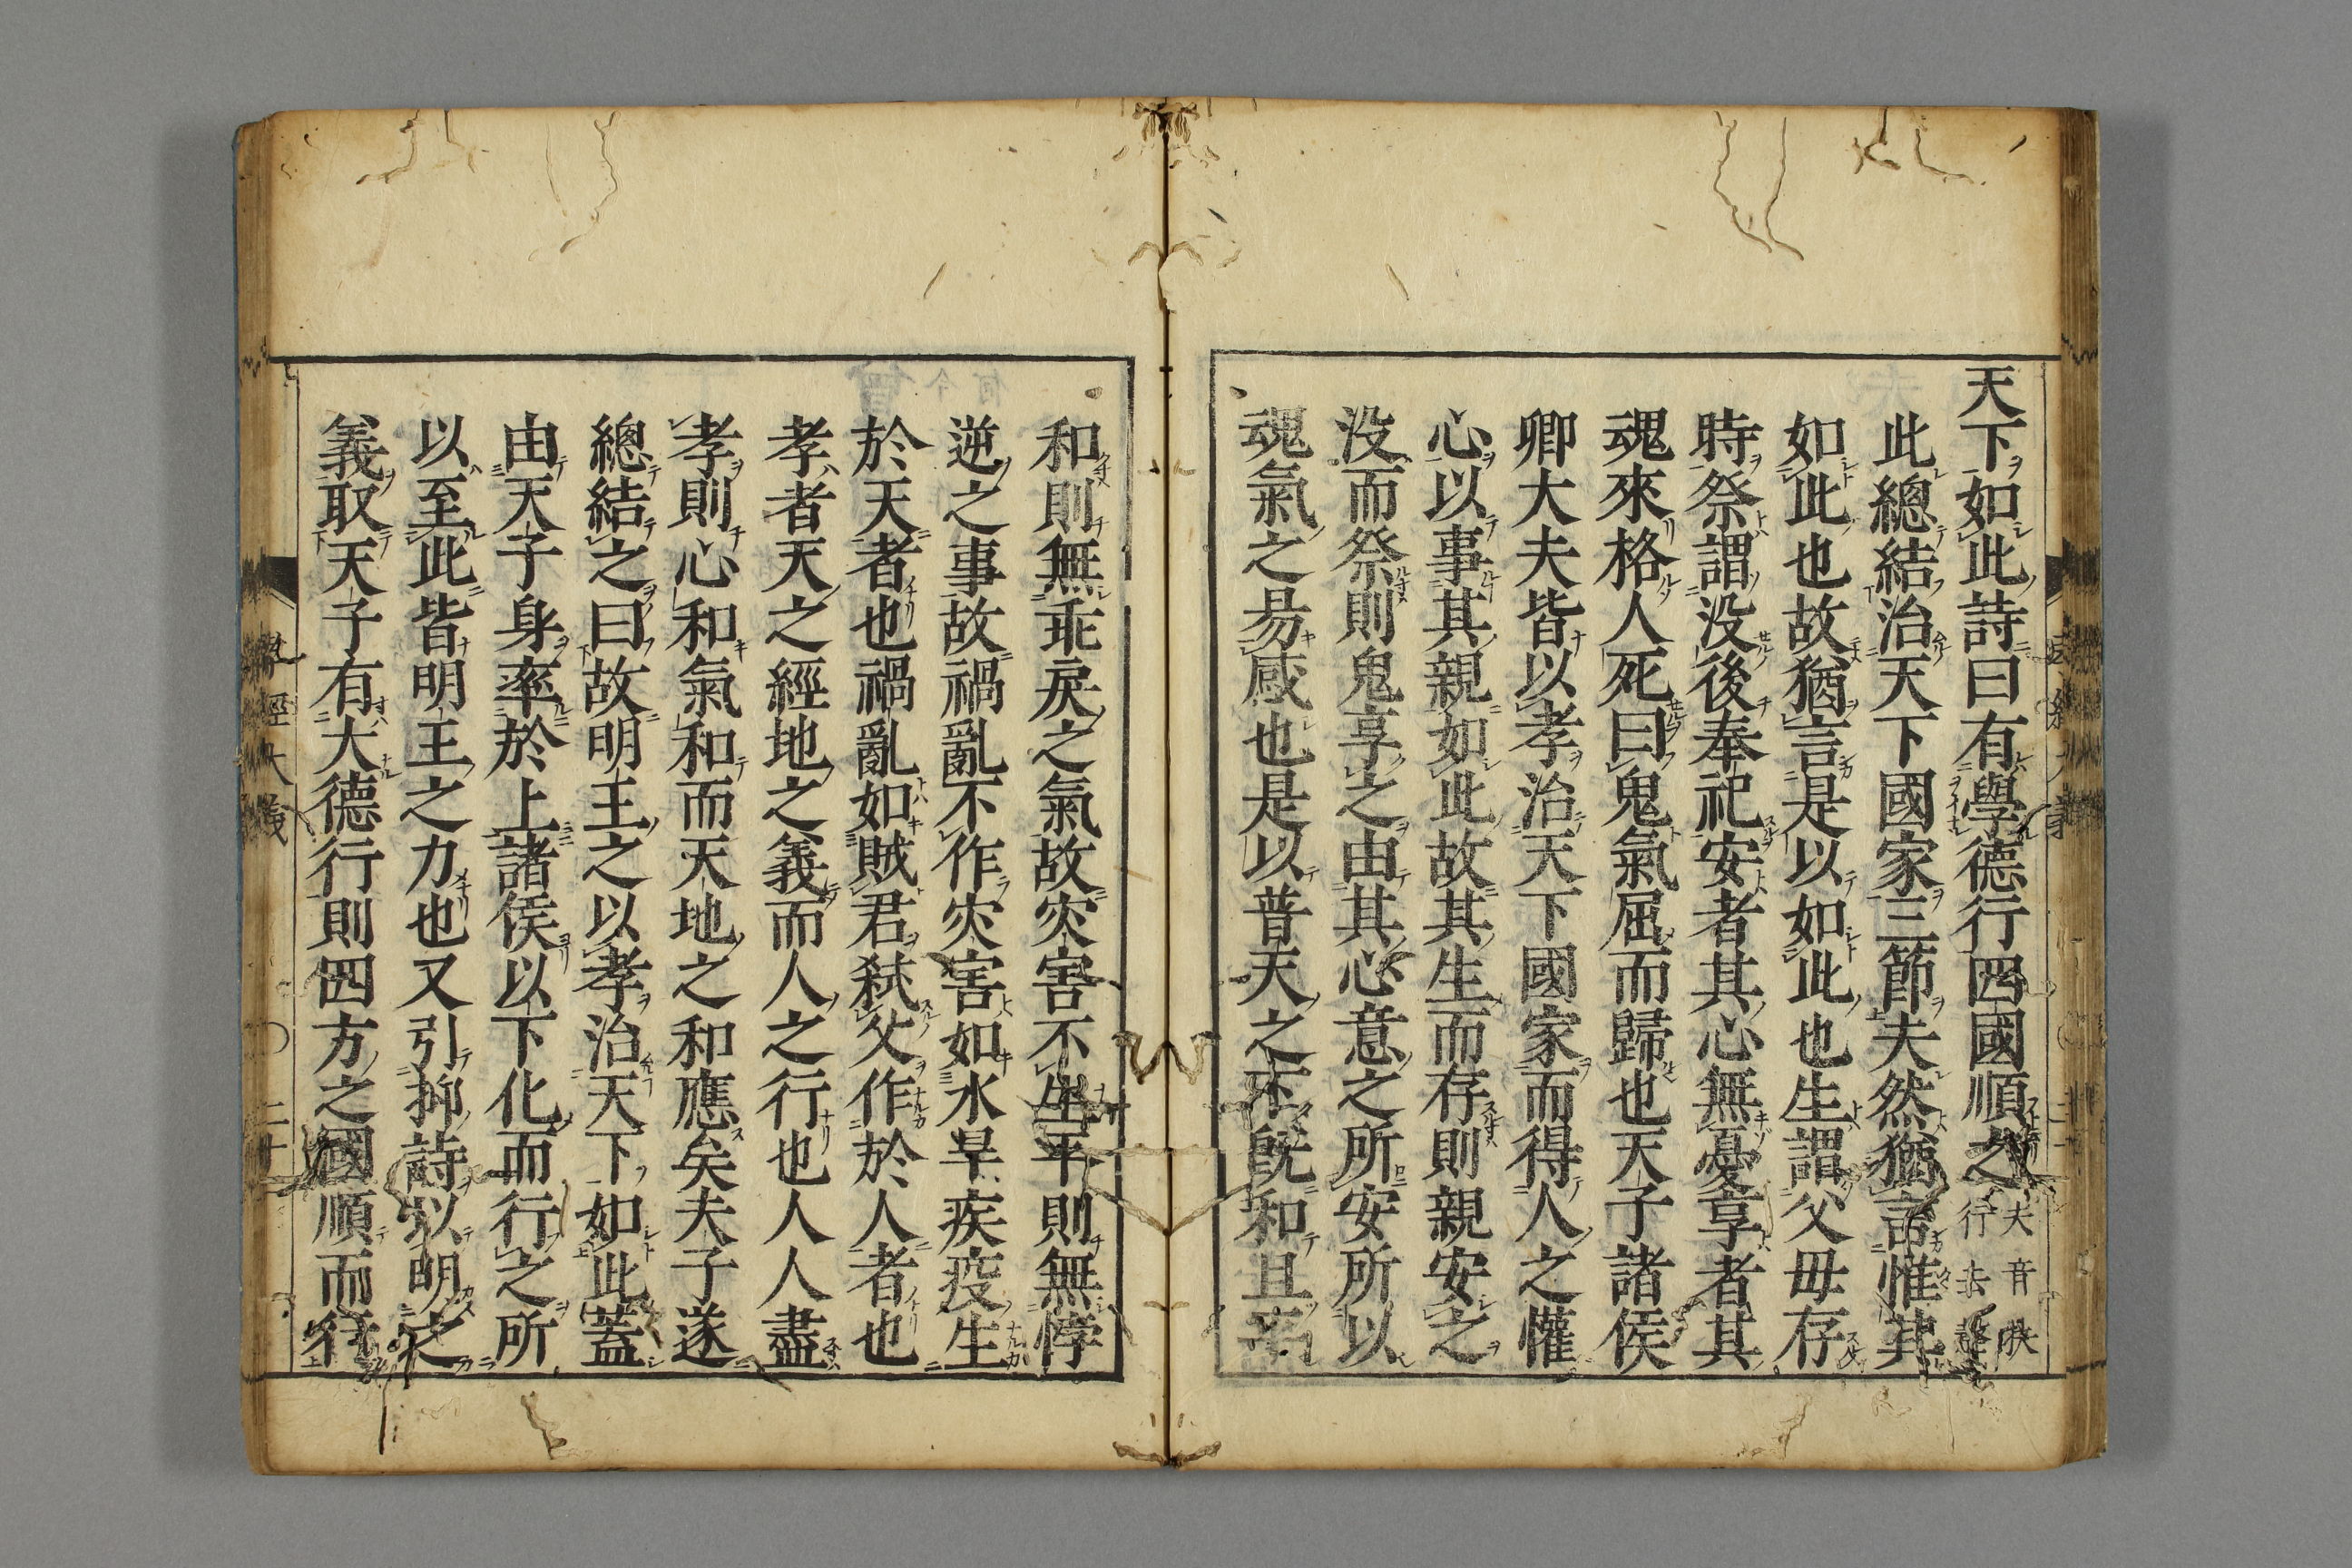 天下如此詩曰有覺德行四國順之夫音扶行去聲
此總結治天下國家三節夫然猶言惟其
如此也故猶言是以如此也生謂父母存
時祭謂没後奉祀安者其心無憂享者其
魂來格人死曰鬼氣屈而歸也天子諸侯
卿大夫皆以孝治天下國家而得人之懽
心以事其親如此故其生而存則親安之
没而祭則鬼享之由其心意之所安所以
魂氣之易感也是以普天之下既和且平
和則無乖戾之氣故灾害不生平則無悖
逆之事故禍亂不作灾害如水旱疾疫生
於天者也禍亂如賊君弑父作於人者也
孝者天之經地之義而人之行也人人盡
孝則心和氣和而天地之和應矣夫子遂
總結之曰故明王之以孝治天下如此蓋
由天子身率於上諸侯以下化而行之所
以至此皆明王之力也又引抑詩以明之
義取天子有大德行則四方之國順而行